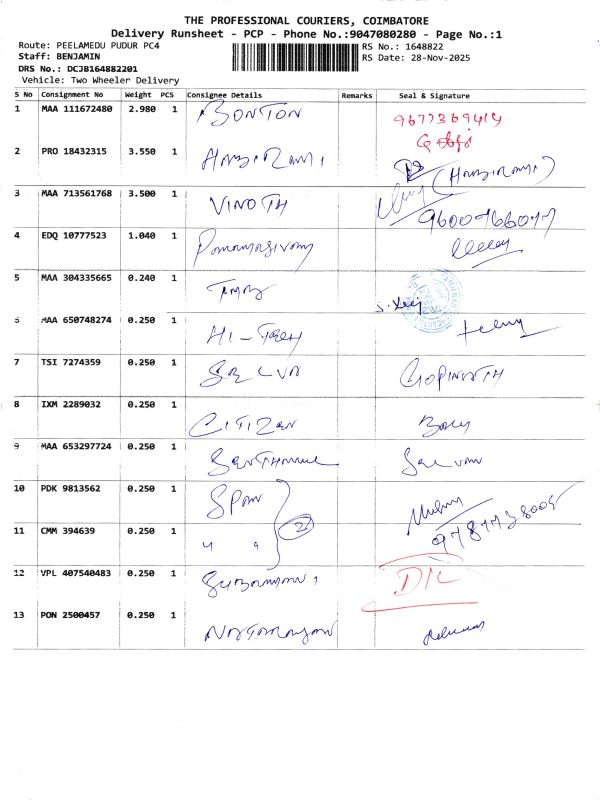 THE PROFESSIONAL COURIERS, COIMBATORE
Delivery Runsheet - PCP - Phone No.:9047080280 - Page No.:1
Route: PEELAMEDU PUDUR PC4
RS No.: 1648822
Staff: BENJAMIN
RS Date: 28-Nov-2025
DRS No.: DCJB164882201
Vehicle: Two Wheeler Delivery
S No Consignment No Weight PCS Consignee Details Remarks Seal & Signature
1 MAA 111672480 2.980 1 BONTON 9677369414
2 PRO 18432315 3.550 1
3 MAA 713561768 3.500 1 VINOTH 9600766077
4 EDQ 10777523 1.040 1
5 MAA 304335665 0.240 1
6 MAA 650748274 0.250 1 HI-TECH
7 TSI 7274359 0.250 1 SELVA GOPINATH
8 IXM 2289032 0.250 1 CITIZEN
9 MAA 653297724 0.250 1 Selvam
10 PDK 9813562 0.250 1 SPAN
11 CMM 394639 0.250 1 " " 2
12 VPL 407540483 0.250 1 D/L
13 PON 2500457 0.250 1